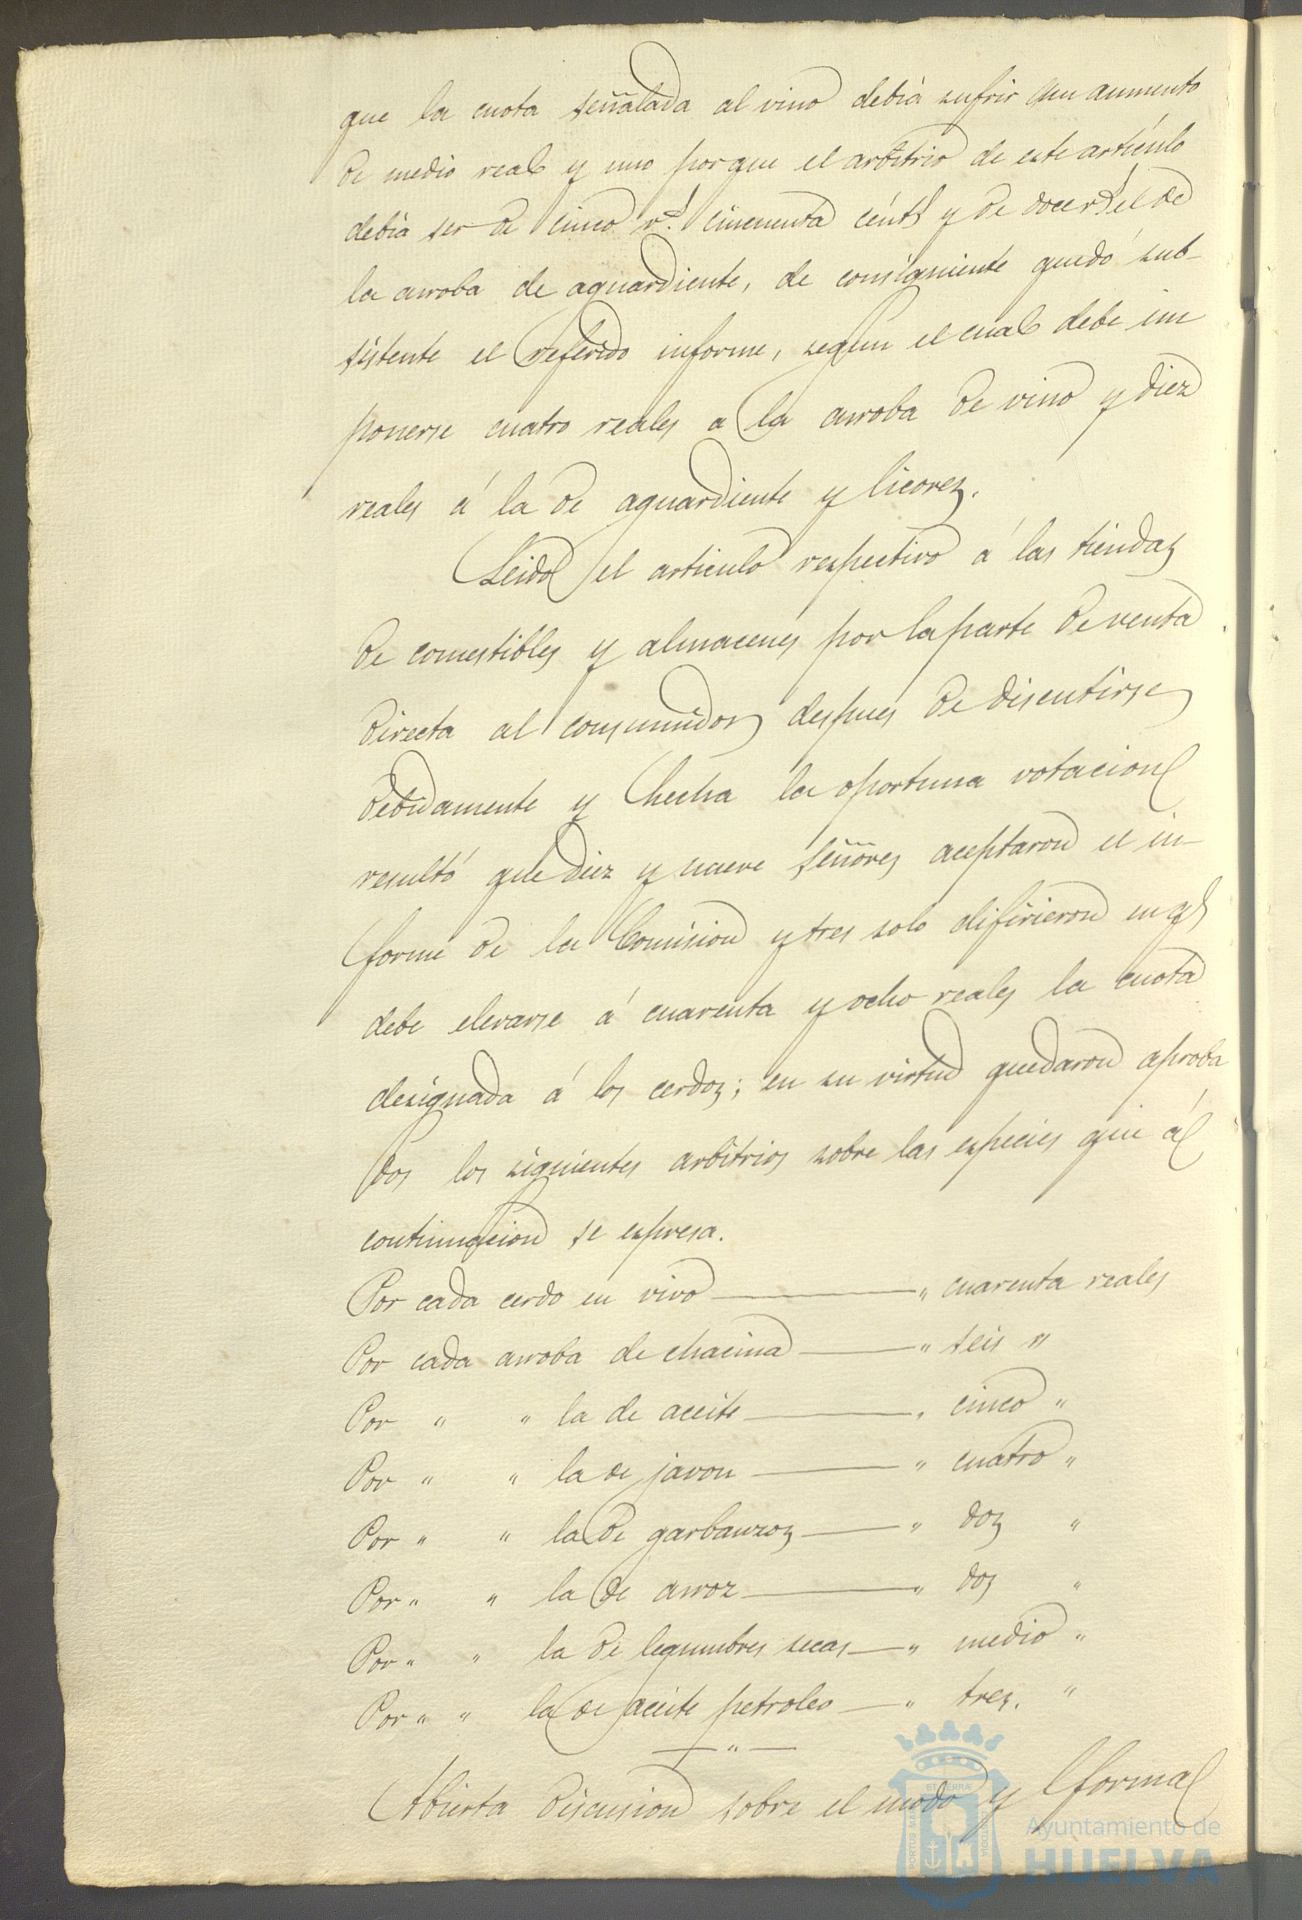 que la cuota señalada al vino debia sufrir un aumento
de medio real y uno porque el arbitrio de este artículo
debia ser de cinco rs. cincuenta cénts y de doce rs el de
la arroba de aguardiente, de consiguiente quedó sub-
sistente el referido informe, segun el cual debe im
ponerse cuatro reales a la arroba de vino y diez
reales á la de aguardiente y licores.
Leido el articulo respectivo á las tiendas
de comestibles y almacenes por la parte de venta
directa al consumidor, despues de discutirse
debidamente y hecha la oportuna votacion
resultó que diez y nueve señores aceptaron el in-
forme de la Comision y tres solo difirieron en q.e
debe elevarse á cuarenta y ocho reales la cuota
designada á los cerdos; en su virtud quedaron aproba
dos los siguientes arbitrios sobre las especies que á
continuacion se espresa.
Por cada cerdo en vivo ——— " cuarenta reales
Por cada arroba de chacina ——— " seis "
Por " " la de aceite ——— " cinco "
Por " " la de javon ——— " cuatro "
Por " " la de garbanzos ——— " dos "
Por " " la de arroz ——— " dos "
Por " " la de legumbres secas — " medio "
Por " " la de aceite petroleo — " tres. "
— " —
Abierta discusion sobre el modo y forma
Ayuntamiento de
HUELVA